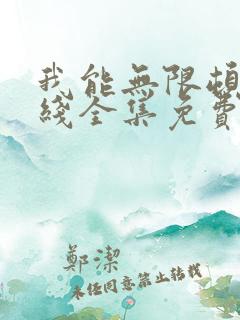 我能無限頓
綫全集免費
鄭潔
未经同意禁止转载